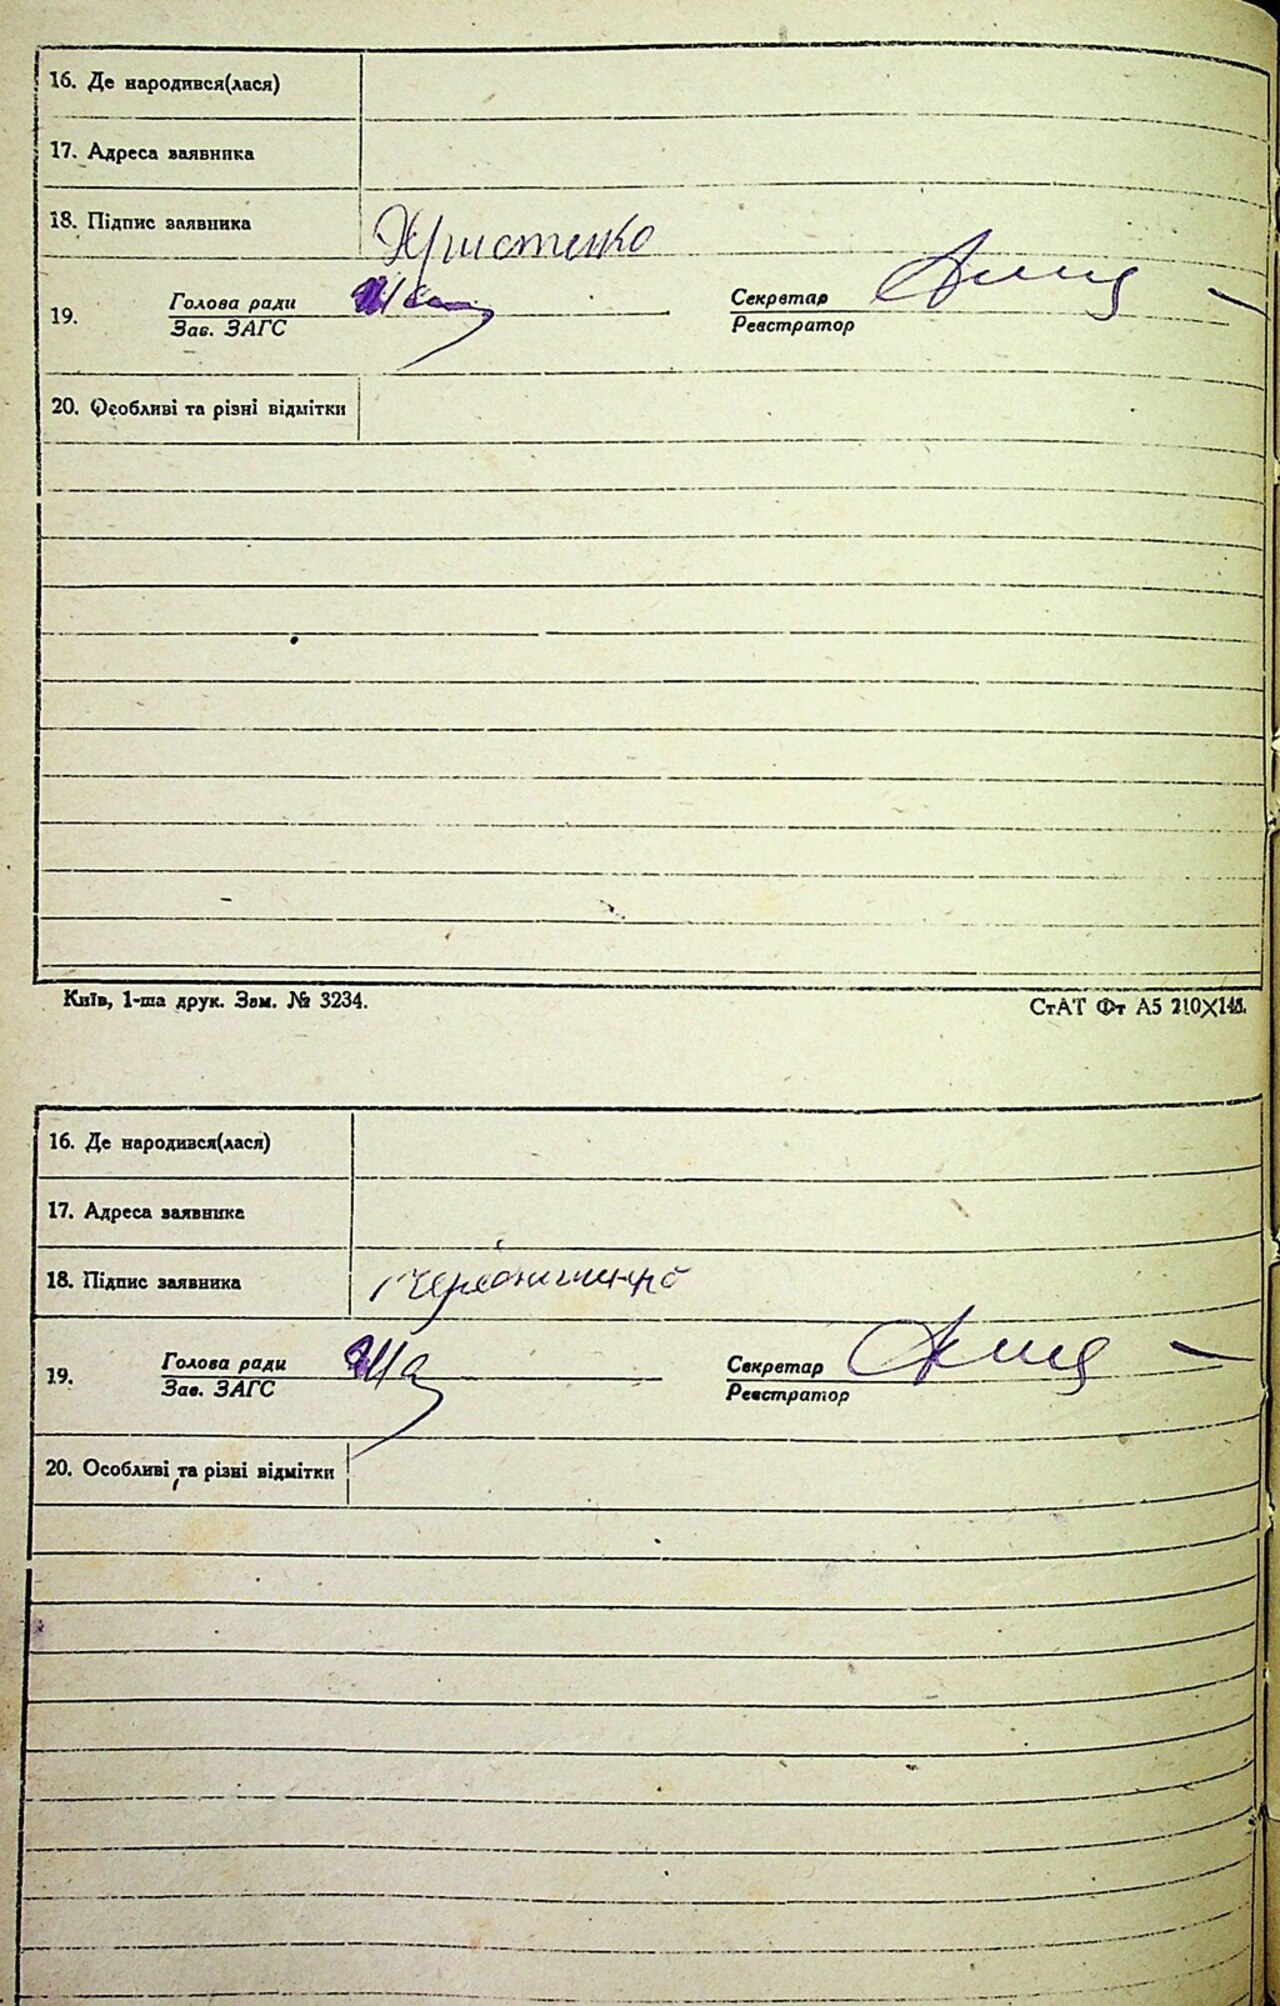 16. Де народився(лася)
17. Адреса заявника
18. Підпис заявника Христенко
19. Голова ради Секретар
Зав. ЗАГС Реєстратор
20. Особливі та різні відмітки
Київ, 1-ша друк. Зам. № 3234. СтАТ Фт А5 210X148.
16. Де народився(лася)
17. Адреса заявника
18. Підпис заявника
19. Голова ради Секретар
Зав. ЗАГС Реєстратор
20. Особливі та різні відмітки